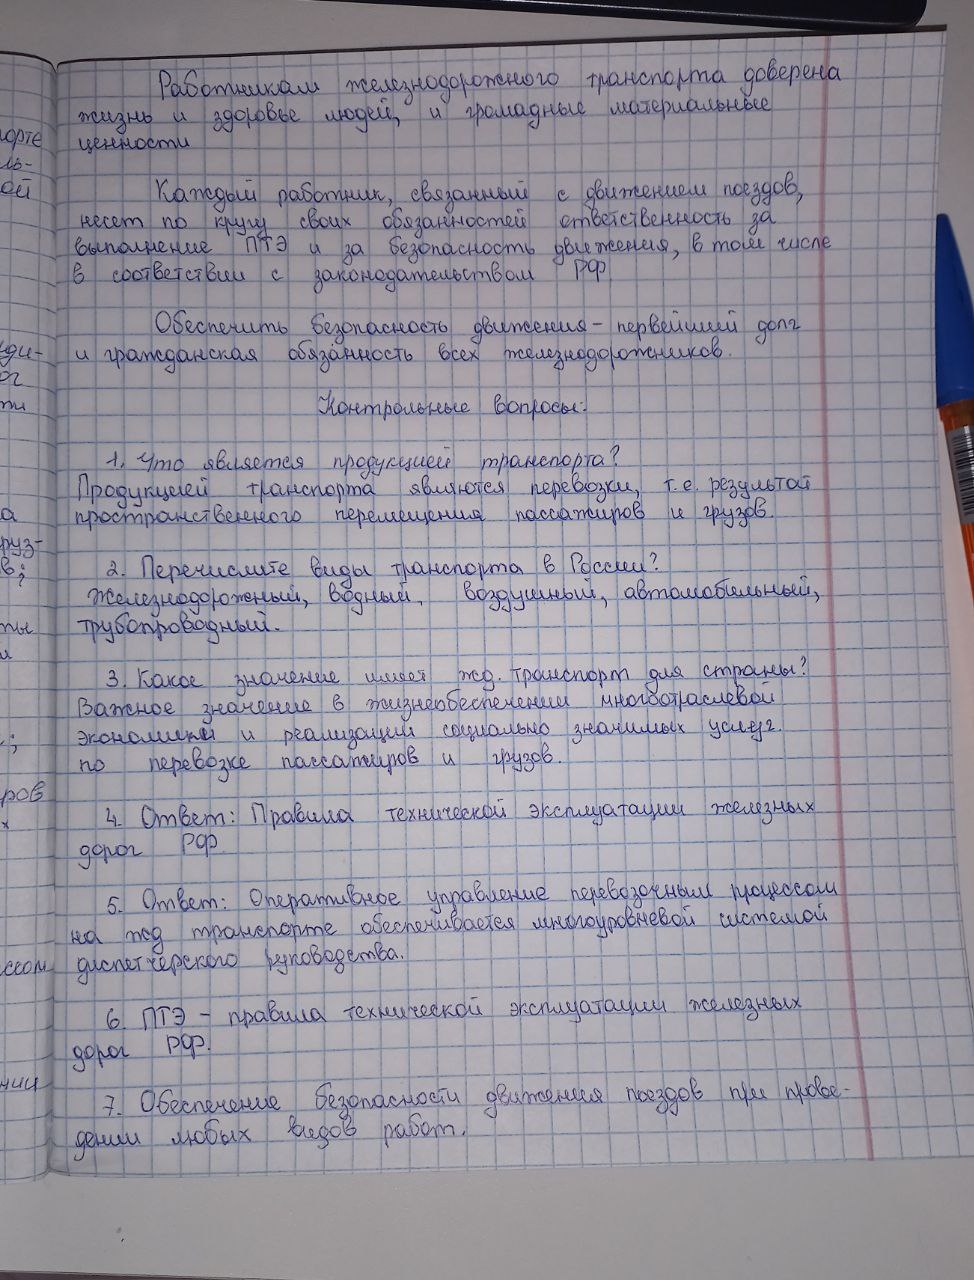 Работникам железнодорожного транспорта доверена
жизнь и здоровье людей, и громадные материальные
ценности
Каждый работник, связанный с движением поездов,
несет по кругу своих обязанностей ответственность за
выполнение ПТЭ и за безопасность движения, в том числе
в соответствии с законодательством РФ
Обеспечить безопасность движения - первейший долг
и гражданская обязанность всех железнодорожников.
Контрольные вопросы:
1. Что является продукцией транспорта?
Продукцией транспорта являются перевозки, т.е. результат
пространственного перемещения пассажиров и грузов.
2. Перечислите виды транспорта в России?
Железнодорожный, водный, воздушный, автомобильный,
трубопроводный.
3. Какое значение имеет жд. транспорт для страны?
Важное значение в жизнеобеспечении многоотраслевой
экономики и реализации социально значимых услуг
по перевозке пассажиров и грузов.
4. Ответ: Правила технической эксплуатации железных
дорог РФ.
5. Ответ: Оперативное управление перевозочным процессом
на жд транспорте обеспечивается многоуровневой системой
диспетчерского руководства.
6. ПТЭ - правила технической эксплуатации железных
дорог РФ.
7. Обеспечение безопасности движения поездов при прове-
дении любых видов работ.